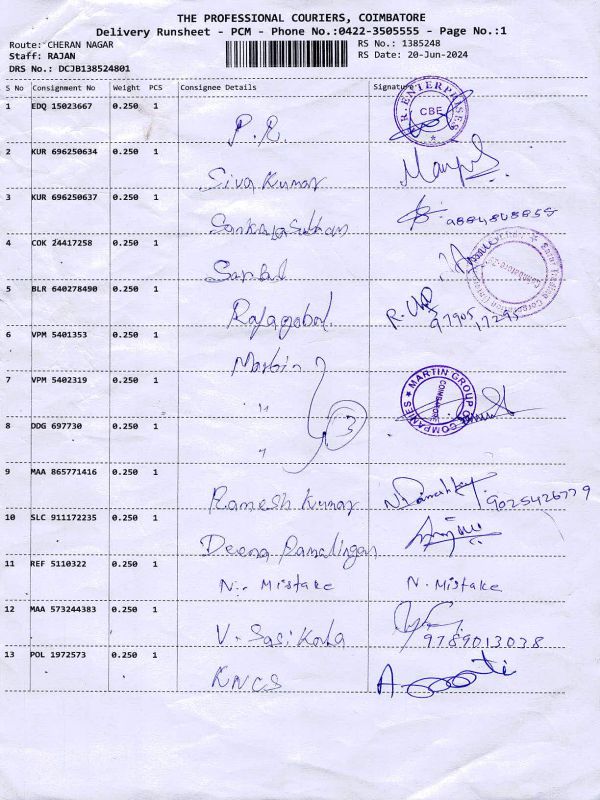 THE PROFESSIONAL COURIERS, COIMBATORE
Delivery Runsheet - PCM - Phone No.:0422-3505555 - Page No.:1
Route: CHERAN NAGAR RS No.: 1385248
Staff: RAJAN RS Date: 20-Jun-2024
DRS No.: DCJB138524801
S No Consignment No Weight PCS Consignee Details Signature
1 EDQ 15023667 0.250 1
P.R. R.ENTERPRISES CBE
2 KUR 696250634 0.250 1
Siva Kumar
3 KUR 696250637 0.250 1
4 COK 24417258 0.250 1
5 BLR 640278490 0.250 1
Rajagobal.
6 VPM 5401353 0.250 1
Martin
7 VPM 5402319 0.250 1
" MARTIN GROUP OF COMPANIES COIMBATORE
8 DDG 697730 0.250 1
" 3
9 MAA 865771416 0.250 1
Ramesh Kumar
10 SLC 911172235 0.250 1
11 REF 5110322 0.250 1
N. Mistake N. Mistake
12 MAA 573244383 0.250 1
V. Sasi Kala 9789013038
13 POL 1972573 0.250 1
KNCS